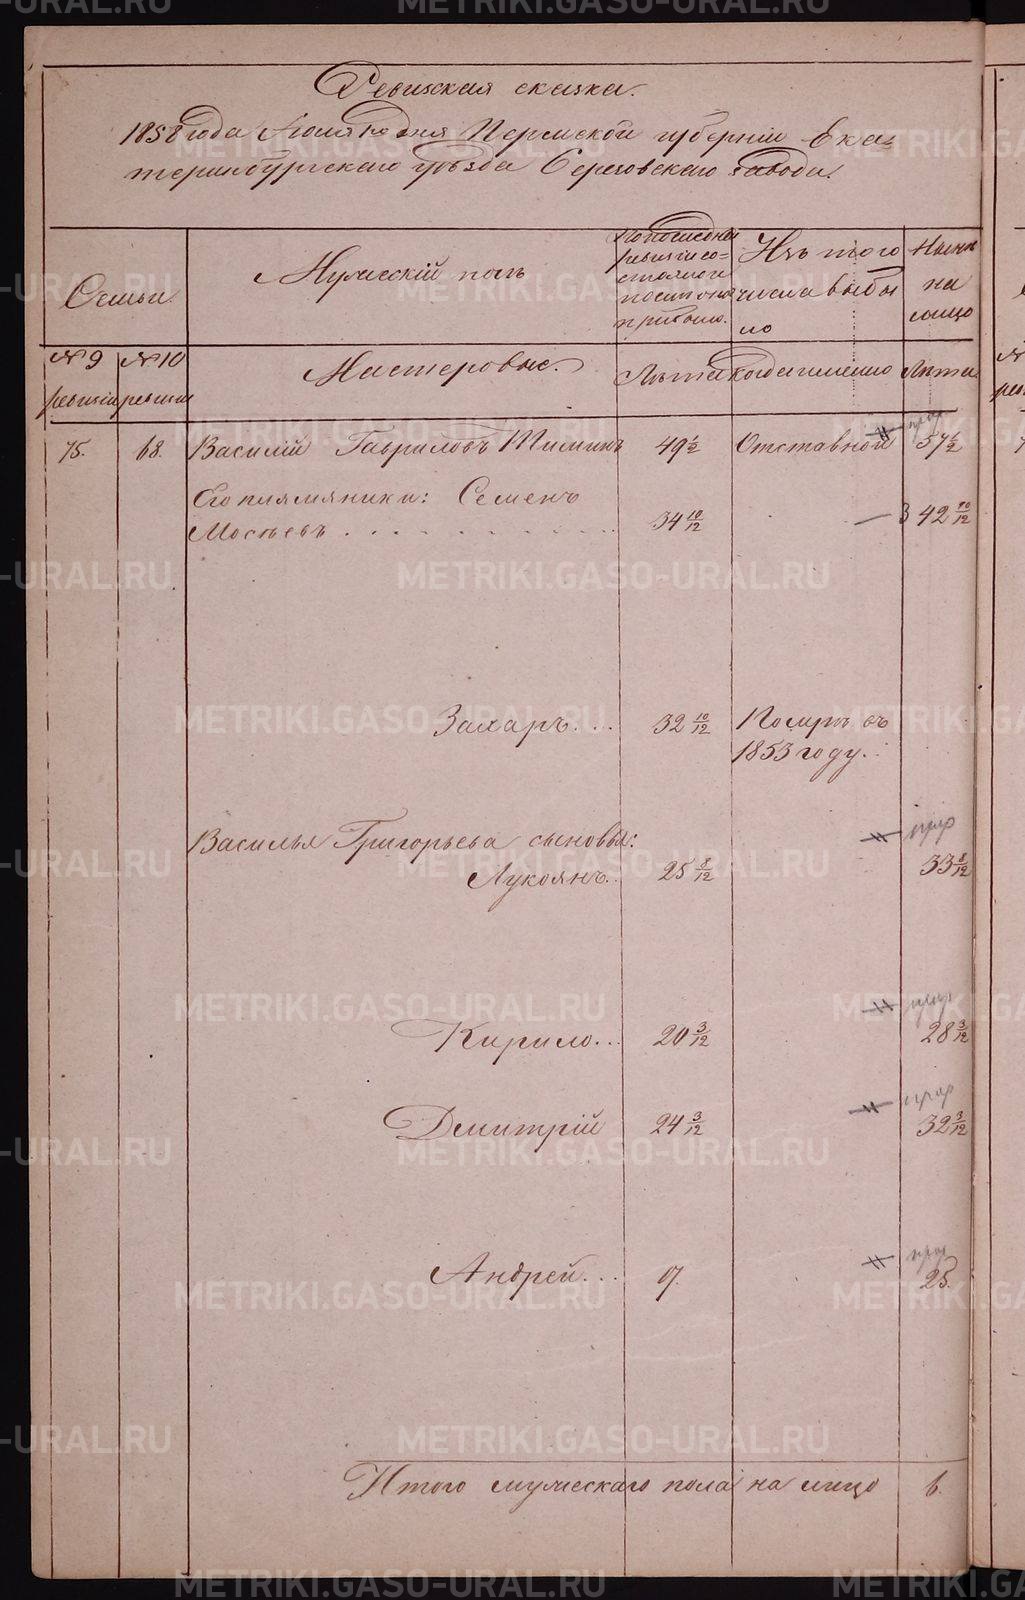 Ревизская сказка.
1858 года Июля 10 дня Пермской губернии Ека-
теринбургскаго уѣзда Серговскаго завода.
Семьи
Мужескій полъ
По последней
ревизіи со-
стояло и
после оной
прибыло.
Изъ того
числа выбы
ло
Нынѣ
на
лицо
№ 9 ревизіи
№ 10 ревизіи
Мастеровые.
Лѣта
Когда именно
Лѣта
75. 68. Василій Гавриловъ Тиминъ 49 1/2 Отставной 57 1/2
Его племяники: Семенъ
Мосѣевъ 34 10/12 42 10/12
Захаръ... 32 10/12 Померъ въ
1853 году.
Василья Григорьева сыновья:
Лукоянъ.. 25 8/12 33 8/12
Кирило... 20 3/12 28 3/12
Дмитрій 24 3/12 32 3/12
Андрей... 17. 25.
Итого мужескаго пола на лицо 6.
METRIKI.GASO-URAL.RU